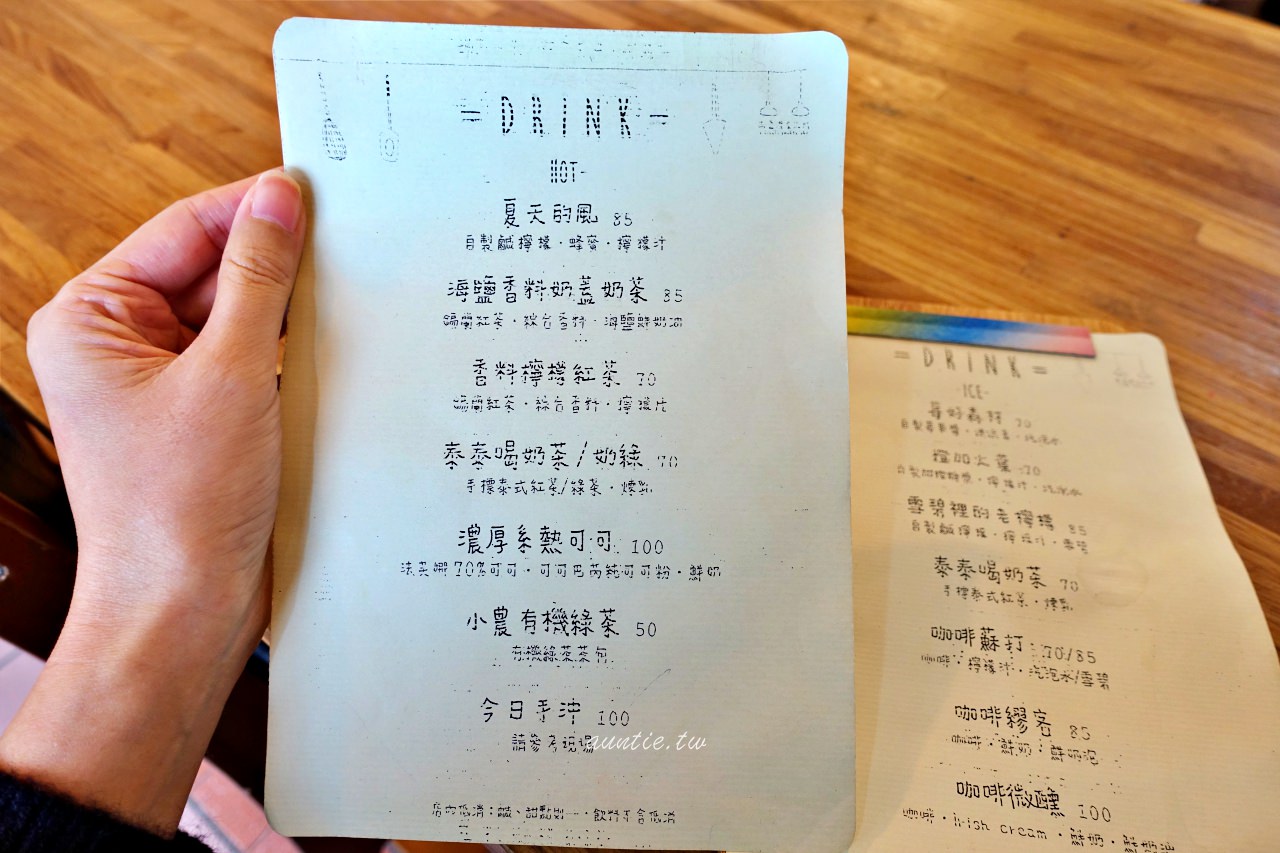 = DRINK =
HOT-
夏天的風 85
自製鹹檸檬·蜂蜜·檸檬汁
海鹽香料奶蓋奶茶 85
錫蘭紅茶·綜合香料·海鹽鮮奶油
香料檸檬紅茶 70
錫蘭紅茶·綜合香料·檸檬片
泰泰喝奶茶/奶綠 70
手標泰式紅茶/綠茶·煉乳
濃厚系熱可可 100
法芙娜70%可可·可可巴芮純可可粉·鮮奶
小農有機綠茶 50
有機綠茶茶包
今日手沖 100
請參考現場
auntie.tw
= DRINK =
-ICE-
莓好森林 70
70
雪碧裡的老檸檬 85
自製鹹檸檬·檸檬汁·雪碧
泰泰喝奶茶 70
手標泰式紅茶·煉乳
咖啡蘇打 70/85
咖啡·檸檬汁·汽泡水/雪碧
咖啡繆客 85
咖啡·鮮奶·鮮奶泡
咖啡微醺 100